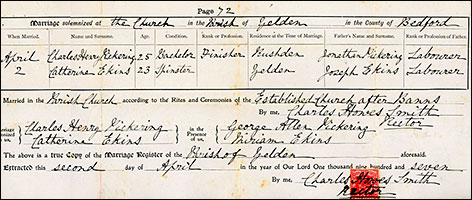 Page 72
Marriage solemnized at the Church in the Parish of Yelden in the County of Bedford
When Married. Name and Surname. Age. Condition. Rank or Profession. Residence at the Time of Marriage. Father's Name and Surname. Rank or Profession of Father.
April Charles Henry Pickering 25 Bachelor Finisher Rushden Jonathan Pickering Labourer
2 Catherine Ekins 23 Spinster Yelden Joseph Ekins Labourer
Married in the Parish Church according to the Rites and Ceremonies of the Established Church after Banns
By me, Charles Howes Smith
Rector
Charles Henry Pickering in the Presence of us, George Allen Pickering
Catherine Ekins Miriam Ekins
The above is a true Copy of the Marriage Register of the Parish of Yelden aforesaid.
Extracted this second day of April in the year of Our Lord One thousand nine hundred and seven
By me, Charles Howes Smith
Rector